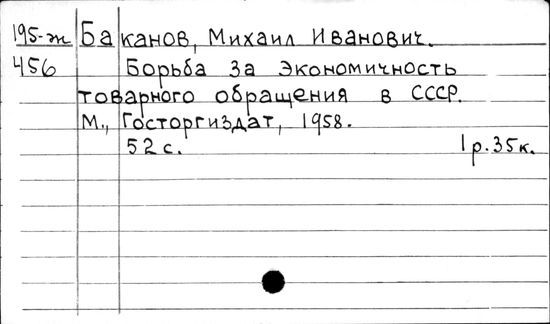 195-ж Баканов, Михаил Иванович.
456 Борьба за экономичность
товарного обращения в СССР.
М., Госторгиздат, 1958.
52 с. 1 р. 35 к.